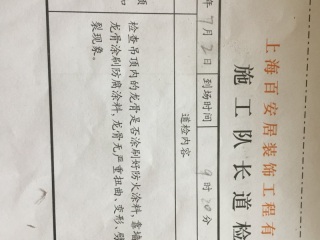 上海百安居装饰工程有
施工队长道检
年 7月 2日 到场时间 9时20分
道检内容
检查吊顶内的龙骨是否涂刷好防火涂料,靠墙
龙骨涂刷防腐涂料,龙骨无严重扭曲、变形、劈
裂现象。